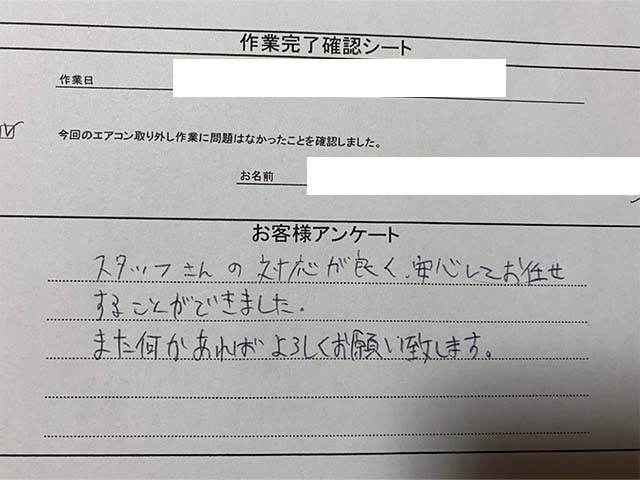 作業完了確認シート
作業日
今回のエアコン取り外し作業に問題はなかったことを確認しました。
お名前
お客様アンケート
スタッフさんの対応が良く、安心してお任せ
することができました.
また何かあればよろしくお願い致します。